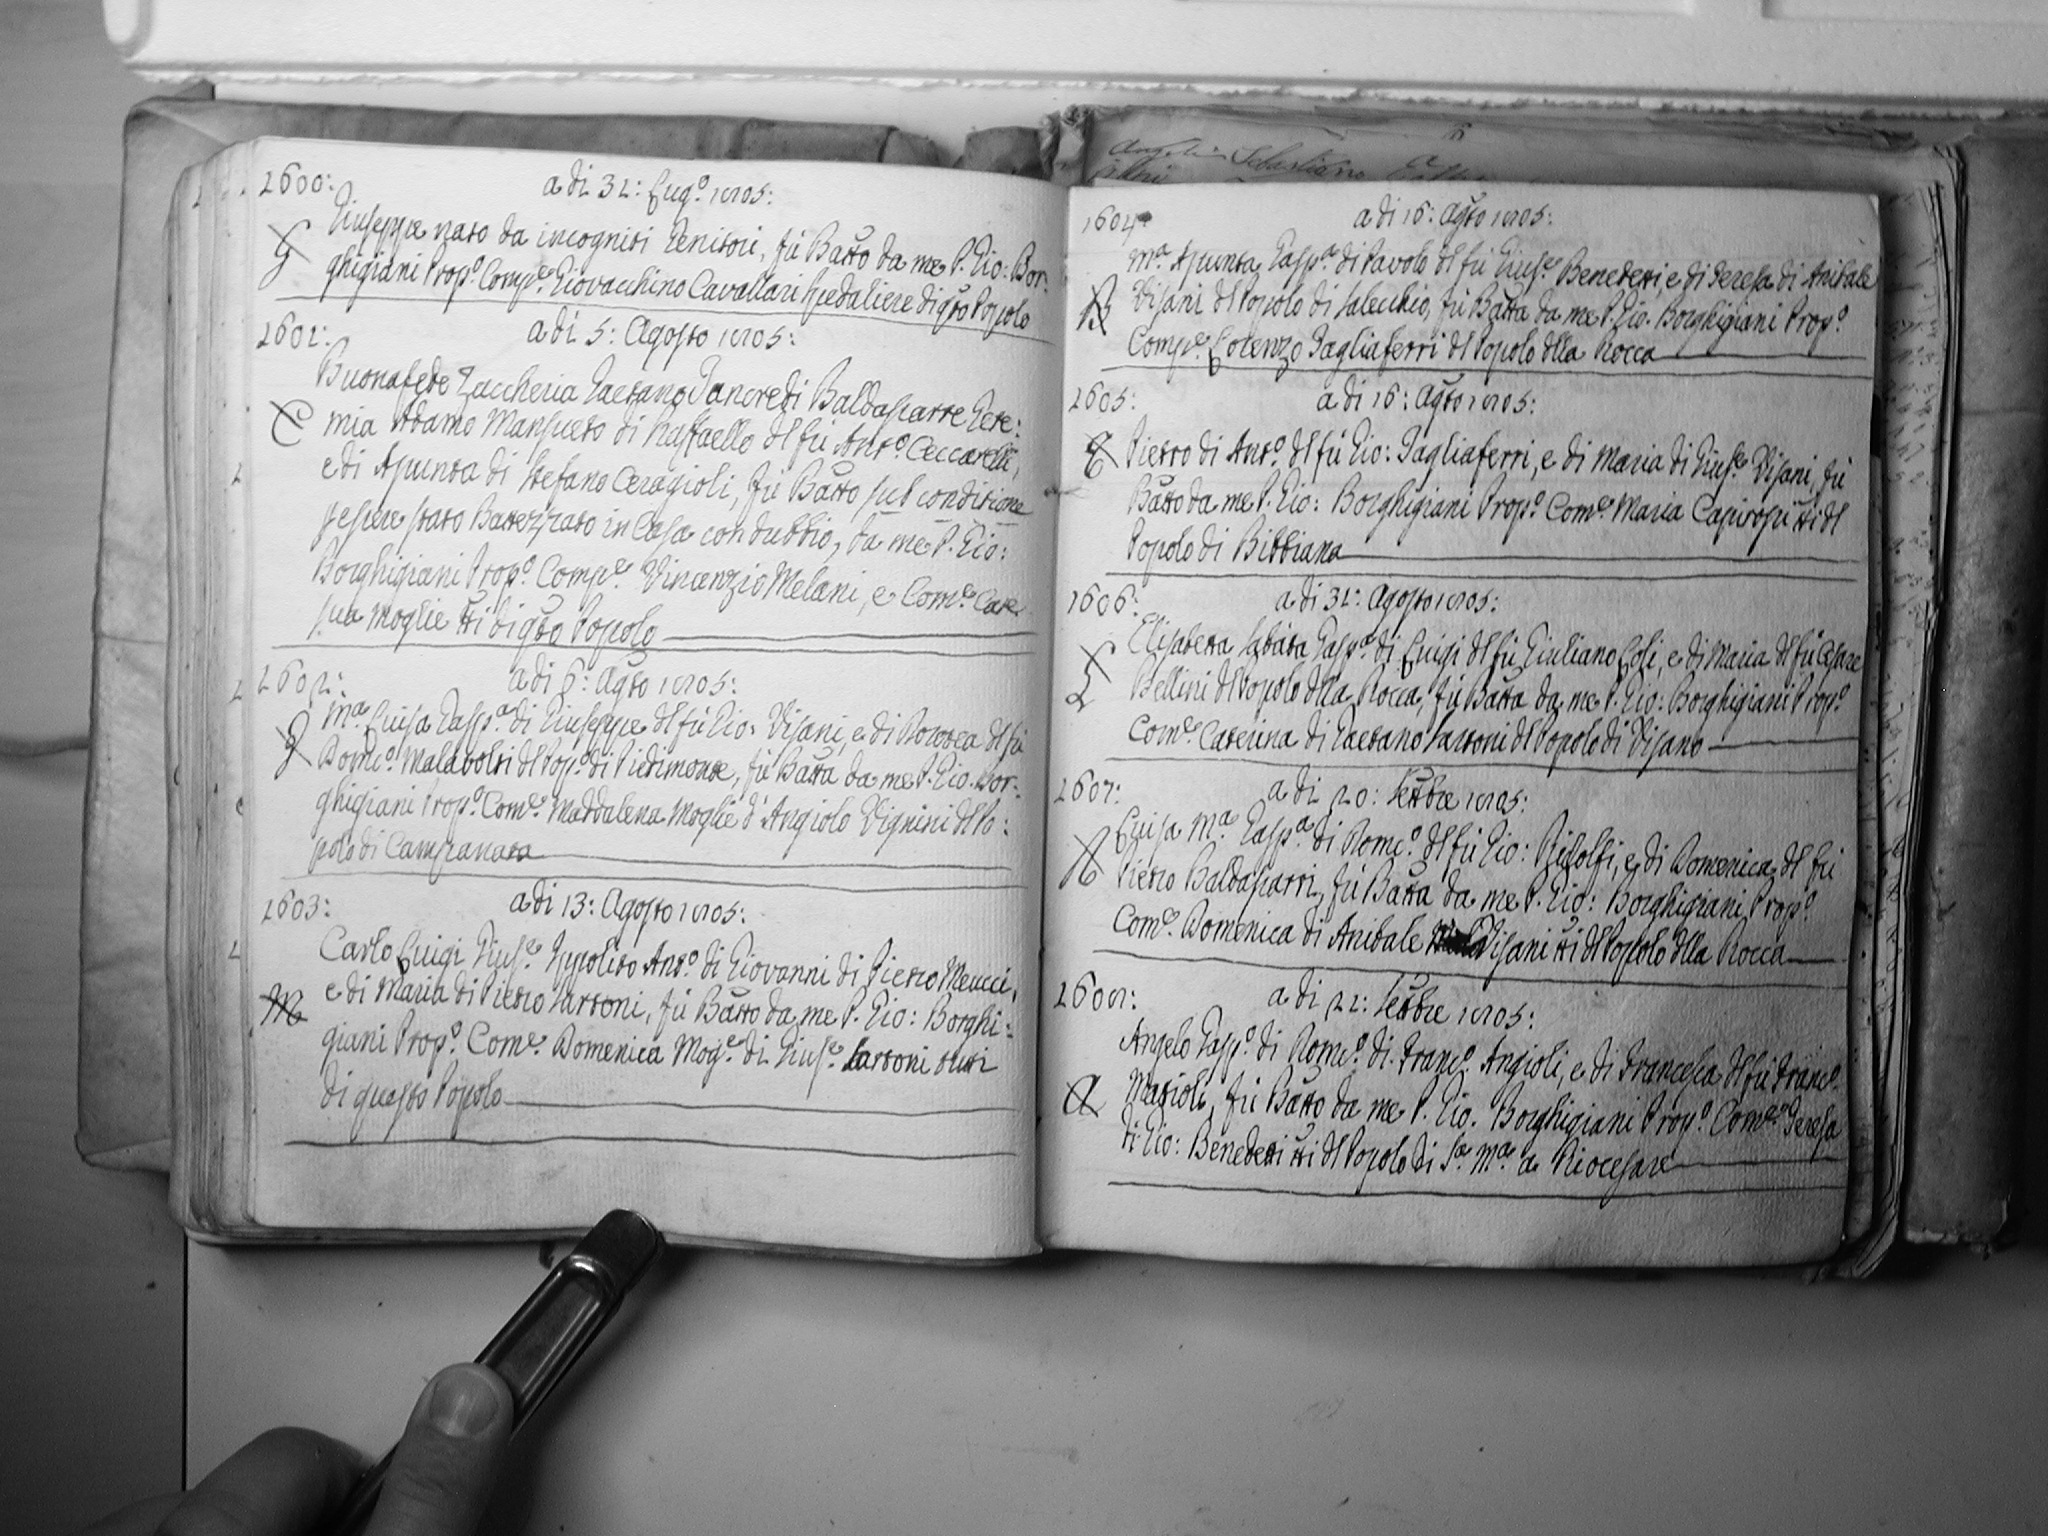 1600:
a di 31: Lug.º 1785:
Giuseppe nato da incogniti Genitori, fù Batto da me P. Gio: Bor:
G
ghigiani Prop.º Comp.e Giovacchino Cavallari Spedaliere di qsto Popolo
1601:
a di 5: Agosto 1785:
Buonafede Zaccheria Gaetano Tancredi Baldassarre Gere:
C
mia Adamo Mansueto di Raffaello dl fù Ant.º Ceccarelli,
e di Assunta di Stefano Ceragioli, fù Batto sub conditione
essere stato Battezzato in Casa con dubbio, da me P. Gio:
Borghigiani Prop.º Comp.e Vincenzio Melani, e Com.e Cate
sua moglie tti di qsto Popolo
1602:
a di 6: Agsto 1785:
M.a Luisa Gasp.a di Giuseppe dl fù Gio: Visani, e di Dorotea dl fù
Dom.co Malavolti dl Pop.º di Piedimonte, fù Batta da me P. Gio. Bor:
ghigiani Prop.º Com.e Maddalena Moglie d'Angiolo Vignini dl Po:
polo di Campanara
1603:
a di 13: Agosto 1785:
Carlo Luigi Gius.e Ippolito Ant.º di Giovanni di Pietro Meucci,
M
e di Maria di Pietro Sartoni, fù Batto da me P. Gio: Borghi:
giani Prop.º Com.e Domenica Mog.e di Gius.e Sartoni tutti
di questo Popolo
1604
a di 16: Agsto 1785:
M.a Assunta Gasp.a di Pavolo dl fù Gius.e Benedetti, e di Teresa di Anibale
B
Visani dl Popolo di Salecchio, fù Batta da me P. Gio. Borghigiani Prop.º
Comp.e Lorenzo Tagliaferri dl Popolo dlla Rocca
1605:
a di 16: Agsto 1785:
Pietro di Ant.º dl fù Gio: Tagliaferri, e di Maria di Gius.e Visani, fù
Batto da me P. Gio: Borghigiani Prop.º Com.e Maria tti dl
Popolo di Bibbiana
1606:
a di 31: Agosto 1785:
Elisabetta Sabata Gasp.a di Luigi dl fù Giuliano Loli, e di Maria dl fù Cesare
L
Bellini dl Popolo dlla Rocca, fù Batta da me P. Gio: Borghigiani Prop.º
Com.e Caterina di Gaetano Sartoni dl Popolo di Visano
1607:
a di 20: Settbre 1785:
Luisa M.a Gasp.a di Dom.co dl fù Gio: Ridolfi, e di Domenica dl fù
R
Pietro Baldassarri, fù Batta da me P. Gio: Borghigiani Prop.º
Com.e Domenica di Anibale Visani tti dl Popolo dlla Rocca
1608:
a di 21: Settbre 1785:
Angelo Gasp.º di Dom.co di Franc.º Angioli, e di Francesca dl fù Franc.º
A
Masioli, fù Batto da me P. Gio. Borghigiani Prop.º Com.e Teresa
di Gio: Benedetti tti dl Popolo di S.a M.a a Riocesare